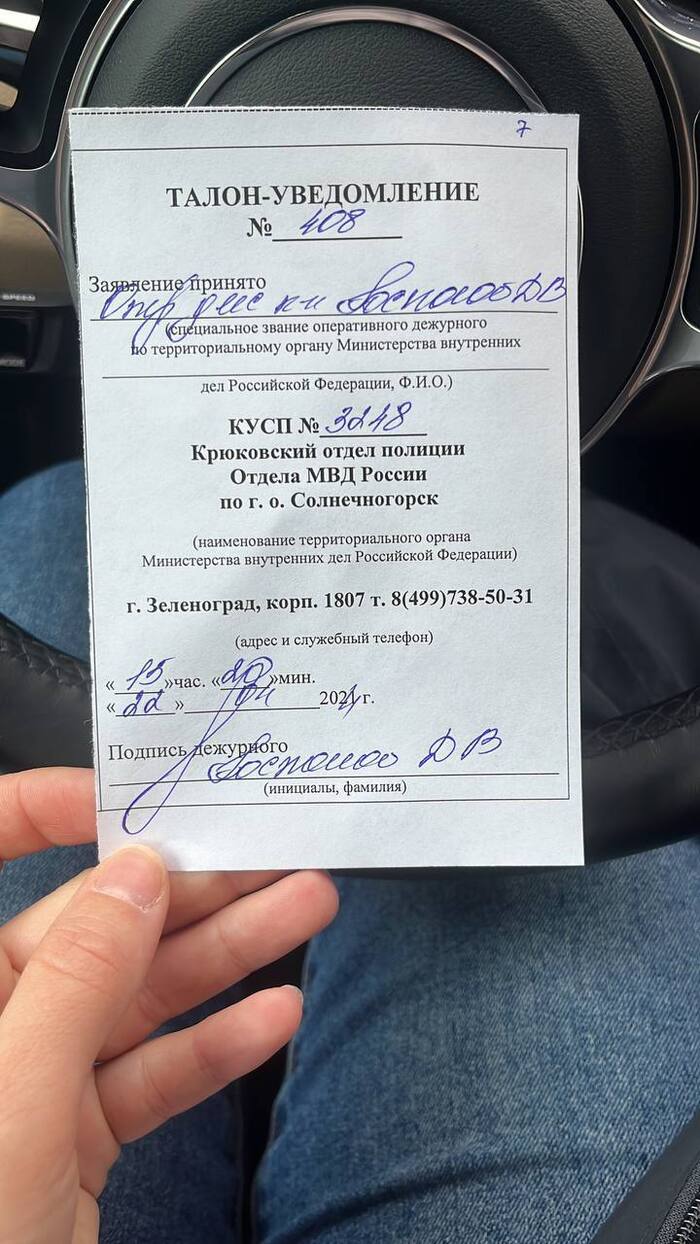 7
ТАЛОН-УВЕДОМЛЕНИЕ
№ 408
Заявление принято
ДВ
(специальное звание оперативного дежурного
по территориальному органу Министерства внутренних
дел Российской Федерации, Ф.И.О.)
КУСП № 3248
Крюковский отдел полиции
Отдела МВД России
по г. о. Солнечногорск
(наименование территориального органа
Министерства внутренних дел Российской Федерации)
г. Зеленоград, корп. 1807 т. 8(499)738-50-31
(адрес и служебный телефон)
« 15 »час. «20»мин.
« 22 » 2024 г.
Подпись дежурного
ДВ
(инициалы, фамилия)